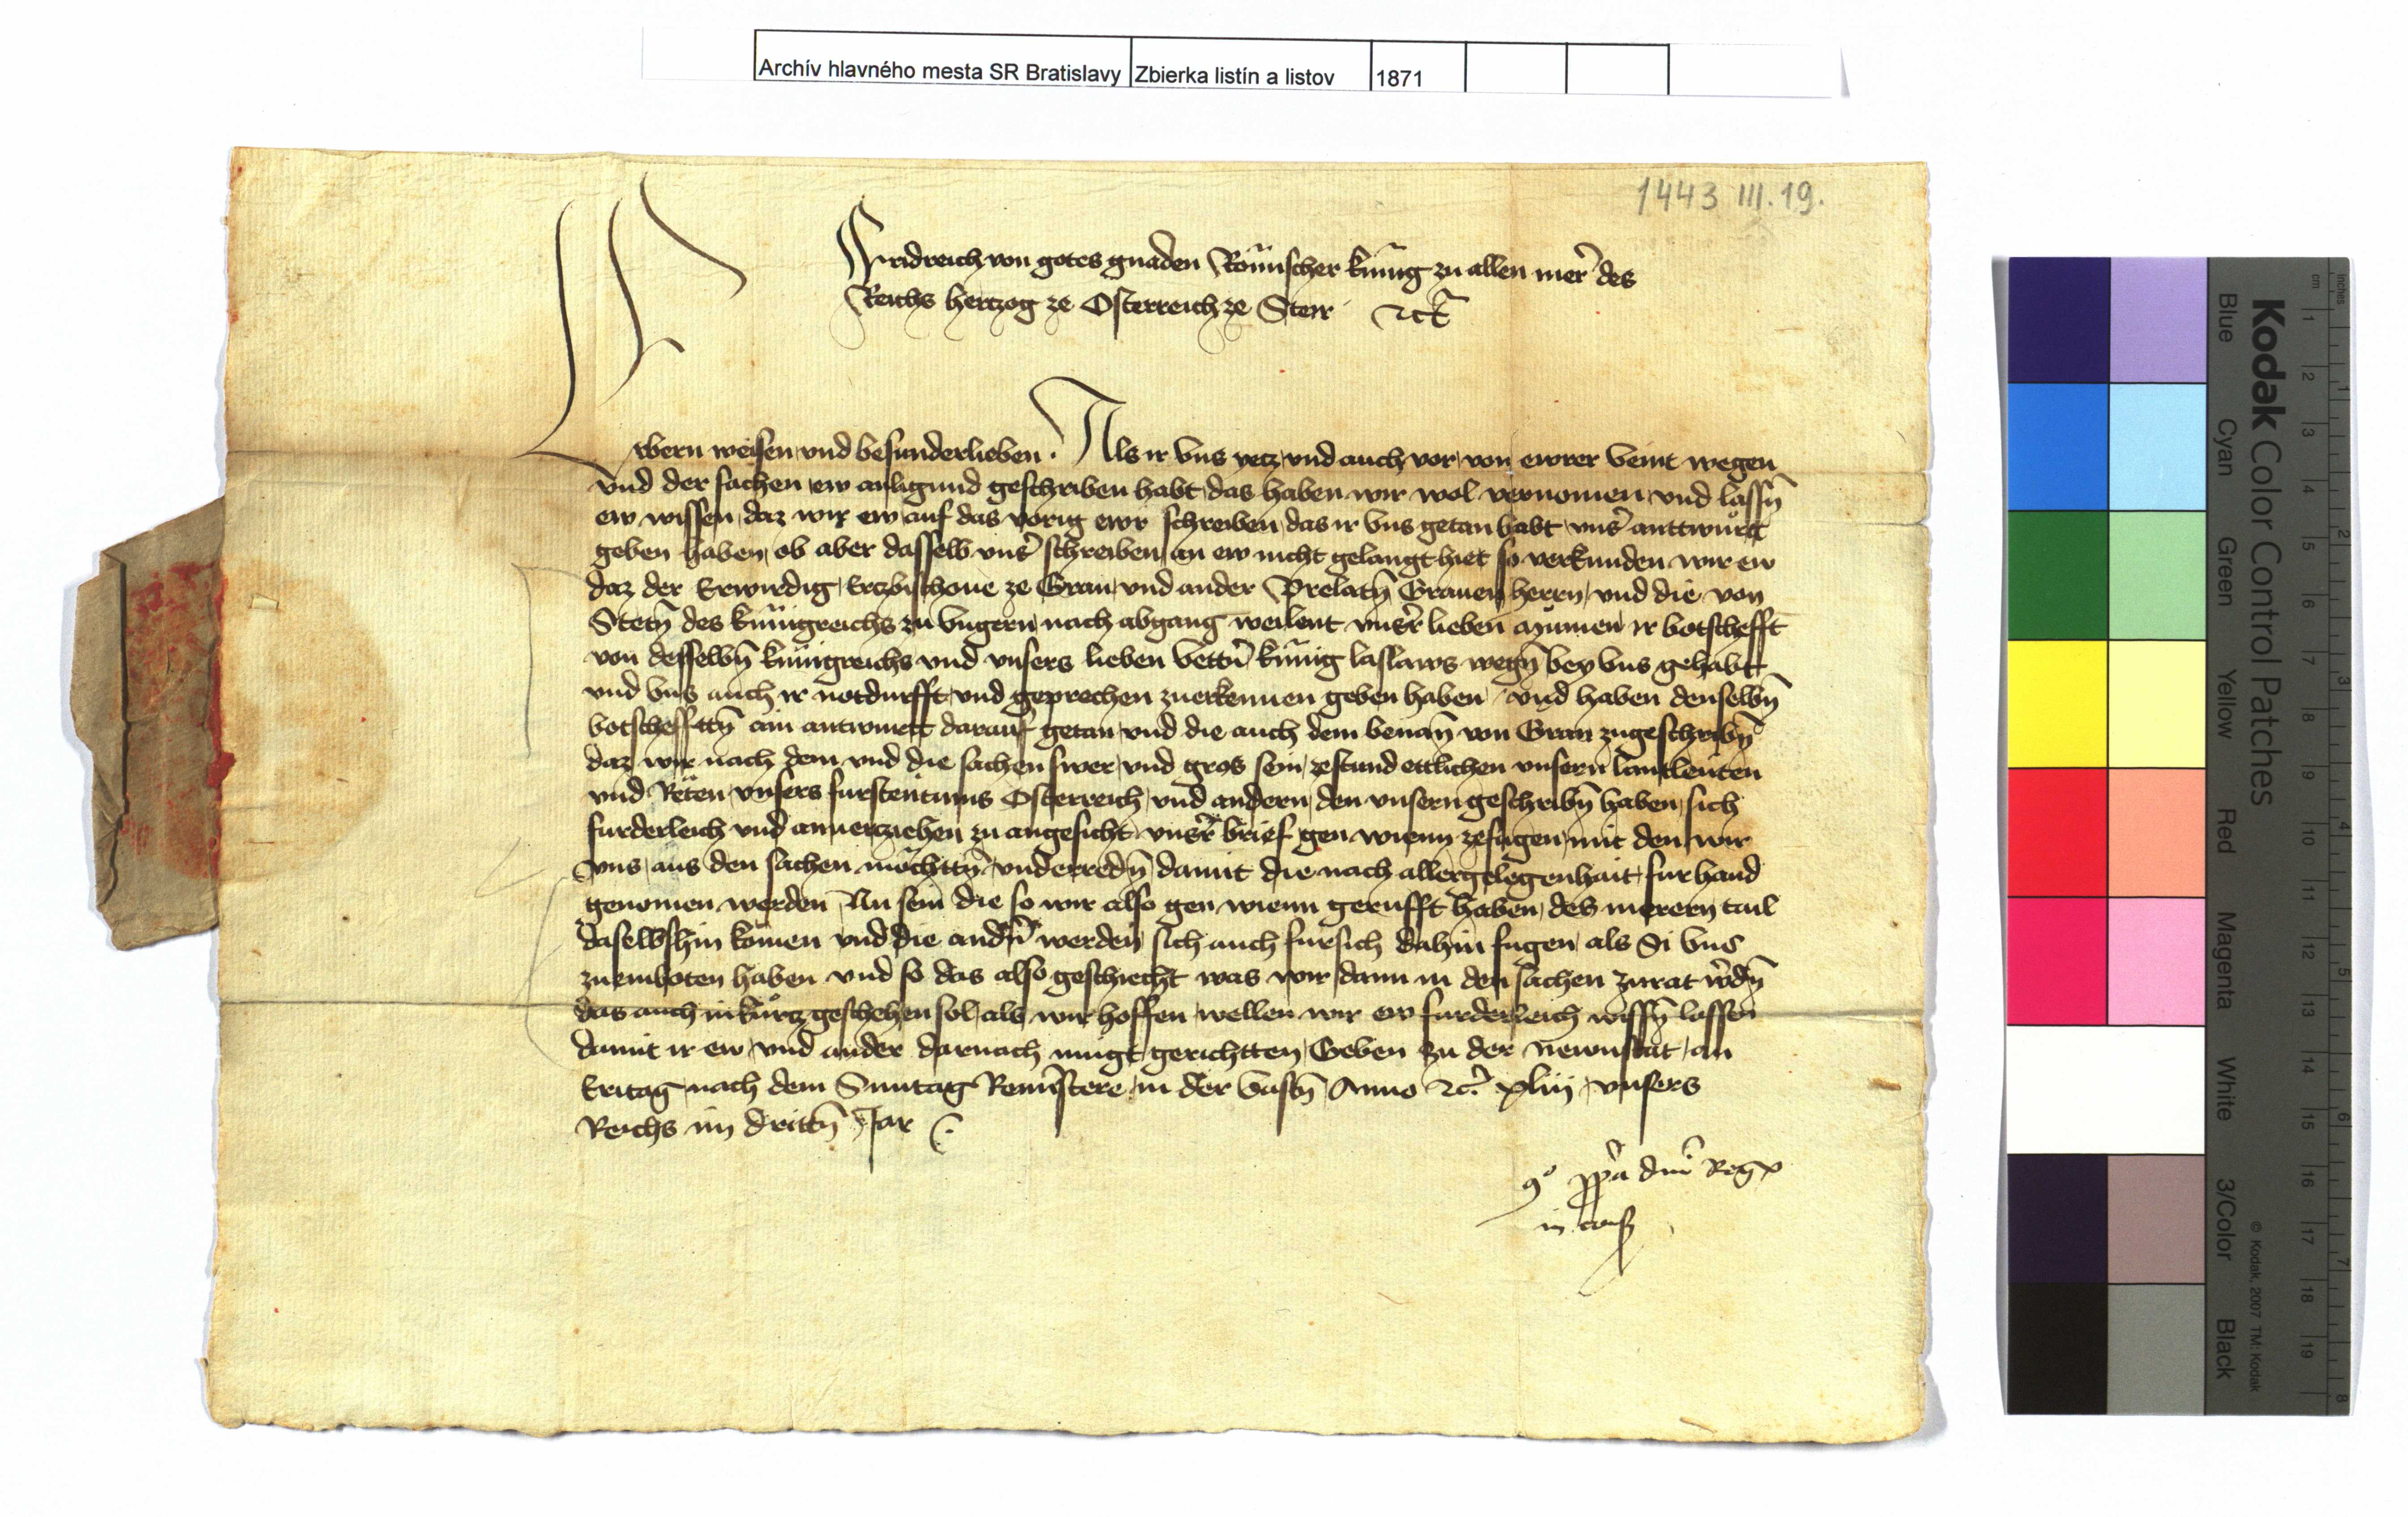 Archív hlavného mesta SR Bratislavy Zbierka listín a listov 1871
1443 III. 19.
Fridreich von gotes gnaden Römischer künig zu allen merˀ des
Reichs hertzog ze Osterreich ze Steir ꝛc̄
Erbern weisen und besunderlieben. Als ir vns yetz und auch vor von ewrer veint wegen
vnd der sachen ew anligund geschriben habt, das haben wir wol vernomen und lassn̄
ew wissen, daz wir ew auf das vorig ewr schreiben, das ir vns getan habt vnsˀ anttwurtt
geben haben, ob aber dasselb vnsˀ schreiben an ew nicht gelangt hiet so verkunden wir ew
daz der Erwirdig Ertzbischoue ze Gran, und ander Prelatn̄ Grauen herrn, und die von
Stetn̄ des künigreichs zu Vngern nach abgang weilent vnsˀr lieben Mümen ir botschefft
von desselbn̄ künigreichs und vnsers lieben vettˀn künig Laslaws wegn̄ bey vns gehabt
und vns auch ir notdurfft und geprechen zuerkennen geben haben / vnd haben denselbn̄
botschefftn̄ ain antwurtt darauf getan und die auch dem benan̄ von Gran zugeschribn̄
daz wir nach dem und die sachen swer, und gros sein, zestund ettlichen vnsern lantleuten
und Reten vnsers furstentums Osterreich, und andern, den vnsern geschribn̄ haben, sich
furderleich und anuertziehen zu angesicht vnsˀr brief gen wienn zefugen, mit den wir
vns, aus den sachen möchttn̄ vnderredn̄ damit die nach aller gelegenhait fur hand
genomen werden Nu sein die so wir also gen wienn gerufft haben, des merern tail
daselbshin komen und die andˀn werden sich auch fursich dahin fugen, als Si vns
zuemboten haben und so das also geschiecht was wir dann in den sachen zurat wˀdn̄
das auch in kürtz geschehen sol, als wir hoffen wellen wir ew furderleich wissn̄ lassen
damit ir ew und ander darnach mügt gerichtten, Geben zu der Newnstat, an
Eritag nach dem Sunntag Reminiscere in der vastn̄ Anno ꝛc. xliij, vnsers
Reichs im drittn̄ Jar
Cᵒ ppˀa dnī Regꝭ
in consꝫ
Kodak Color Control Patches
Blue Cyan Green Yellow Red Magenta White 3/Color Black
© Kodak, 2007 TM: Kodak
inches 1 2 3 4 5 6 7 8
cm 1 2 3 4 5 6 7 8 9 10 11 12 13 14 15 16 17 18 19